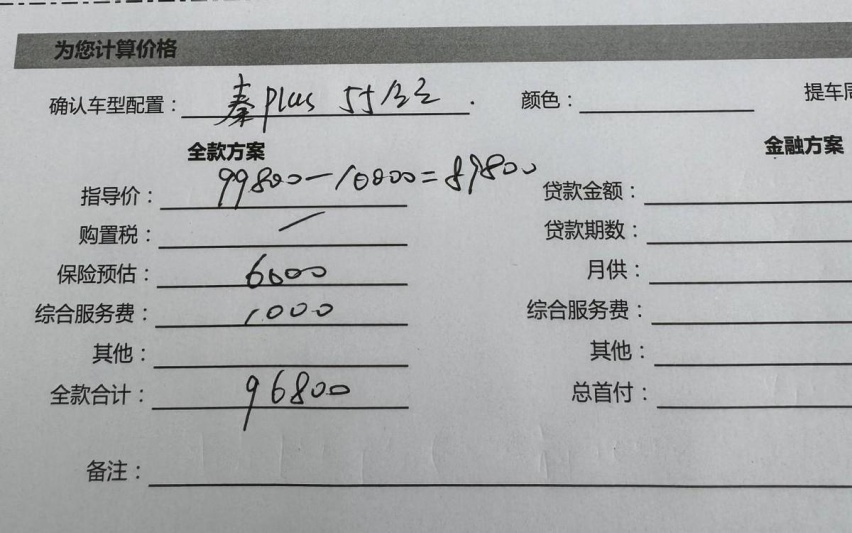 为您计算价格
确认车型配置： 秦plus 55/公里. 颜色： 提车周
全款方案 金融方案
指导价： 99800-10000=89800 贷款金额：
购置税： / 贷款期数：
保险预估： 6000 月供：
综合服务费： 1000 综合服务费：
其他： 其他：
全款合计： 96800 总首付：
备注：